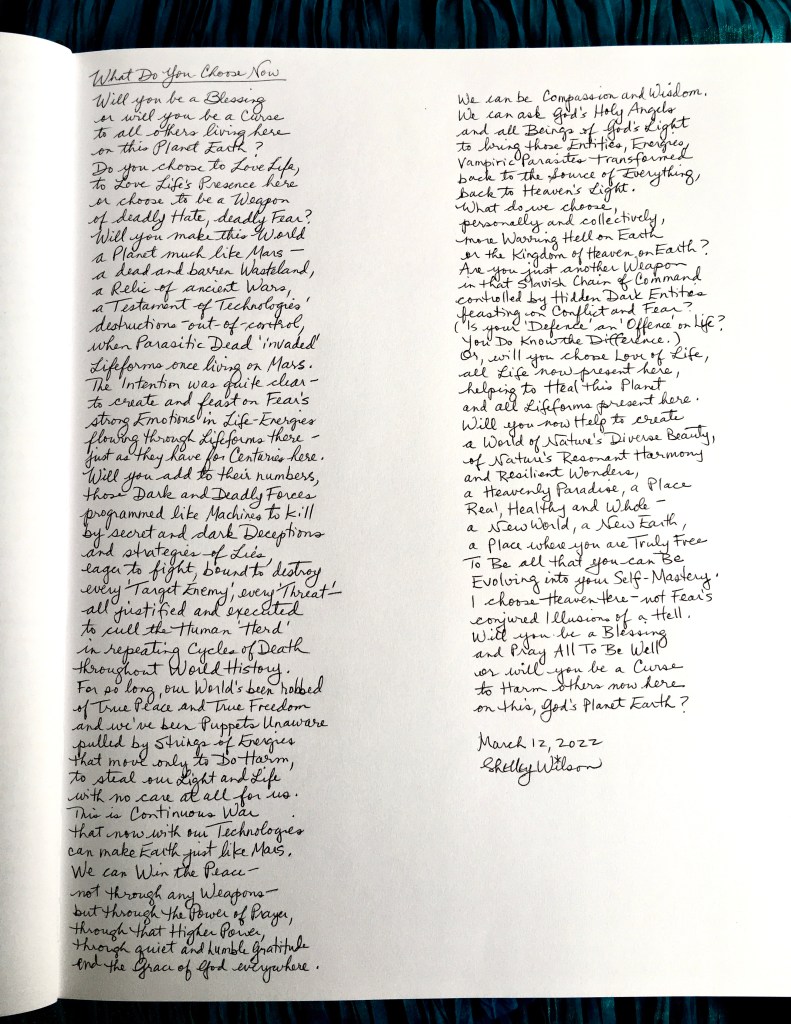 What Do You Choose Now
Will you be a Blessing
or will you be a Curse
to all others living here
on this Planet Earth?
Do you choose to Love Life,
to Love Life's Presence here
or choose to be a Weapon
of deadly Hate, deadly Fear?
Will you make this World
a Planet much like Mars —
a dead and barren Wasteland,
a Relic of ancient Wars,
a Testament of Technologies'
destructions-out-of-control,
when Parasitic Dead 'invaded'
Lifeforms once living on Mars.
The Intention was quite clear —
to create and feast on Fear's
strong Emotions in Life-Energies
flowing through Lifeforms there —
just as they have for Centuries here.
Will you add to their numbers,
those Dark and Deadly Forces
programmed like Machines to Kill
by secret and dark Deceptions
and strategies of Lies
eager to fight, bound to destroy
every 'Target Enemy', every 'Threat' —
all justified and executed
to cull the Human 'Herd'
in repeating Cycles of Death
throughout World History.
For so long, our World's been robbed
of True Peace and True Freedom
and we've been Puppets Unaware
pulled by Strings of Energies
that move only to Do Harm,
to steal our Light and Life
with no care at all for us.
This is Continuous War
that now with our Technologies
can make Earth just like Mars.
We can Win the Peace —
not through any Weapons —
but through the Power of Prayer,
through that Higher Power,
through quiet and humble Gratitude
and the Grace of God everywhere.
We can be Compassion and Wisdom.
We can ask God's Holy Angels
and all Beings of God's Light
to bring those Entities, Energies,
Vampiric Parasites transformed
back to the Source of Everything,
back to Heaven's Light.
What do we choose,
personally and collectively,
more Warring Hell on Earth
or the Kingdom of Heaven on Earth?
Are you just another Weapon
in that Slavish Chain of Command
controlled by Hidden Dark Entities
feasting on Conflict and Fear?
(Is your 'Defence' an 'Offence' on Life?
You Do Know the Difference.)
Or, will you choose Love of Life,
all Life now present here,
helping to Heal this Planet
and all Lifeforms present here.
Will you now Help to create
a World of Nature's Diverse Beauty,
of Nature's Resonant Harmony
and Resilient Wonders,
a Heavenly Paradise, a Place
Real, Healthy and Whole —
a New World, a New Earth,
a Place where you are Truly Free
To Be all that you can Be
Evolving into your Self-Mastery.
I choose Heaven Here — not Fear's
conjured Illusions of a Hell.
Will you be a Blessing
and Pray All To Be Well
or will you be a Curse
to Harm others now here
on this, God's Planet Earth?
March 12, 2022
Shelley Wilson